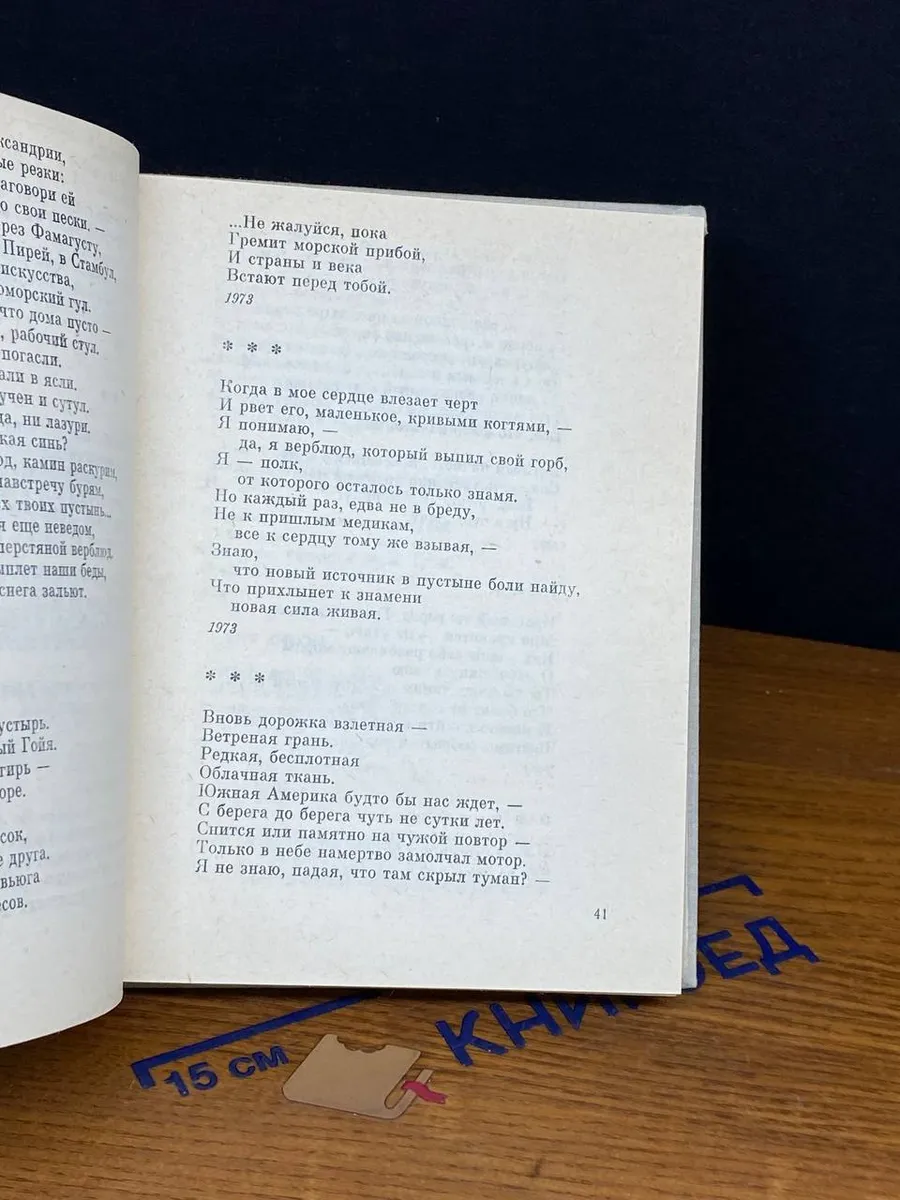 ксандрии,
ые резки:
аговори ей
о свои пески, —
рез Фамагусту,
Пирей, в Стамбул,
искусства,
оморский гул.
что дома пусто —
, рабочий стул.
погасли.
али в ясли.
учен и сутул.
да, ни лазури.
кая синь?
од, камин раскурим,
навстречу бурям,
х твоих пустынь...
я еще неведом,
перстяной верблюд
ыплет наши беды,
снега зальют.
устырь.
ый Гойя.
тирь —
оре.
сок,
е друга.
вьюга
есов.
...Не жалуйся, пока
Гремит морской прибой,
И страны и века
Встают перед тобой.
1973
* * *
Когда в мое сердце влезает черт
И рвет его, маленькое, кривыми когтями, —
Я понимаю, —
да, я верблюд, который выпил свой горб,
Я — полк,
от которого осталось только знамя.
Но каждый раз, едва не в бреду,
Не к пришлым медикам,
все к сердцу тому же взывая, —
Знаю,
что новый источник в пустыне боли найду,
Что прихлынет к знамени
новая сила живая.
1973
* * *
Вновь дорожка взлетная —
Ветреная грань.
Редкая, бесплотная
Облачная ткань.
Южная Америка будто бы нас ждет, —
С берега до берега чуть не сутки лет.
Снится или памятно на чужой повтор —
Только в небе намертво замолчал мотор.
Я не знаю, падая, что там скрыл туман? —
41
15 см